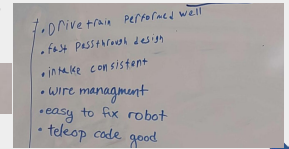 • Drive train performed well
• fast passthrough design
• intake consistent
• wire managment
• easy to fix robot
• teleop code good